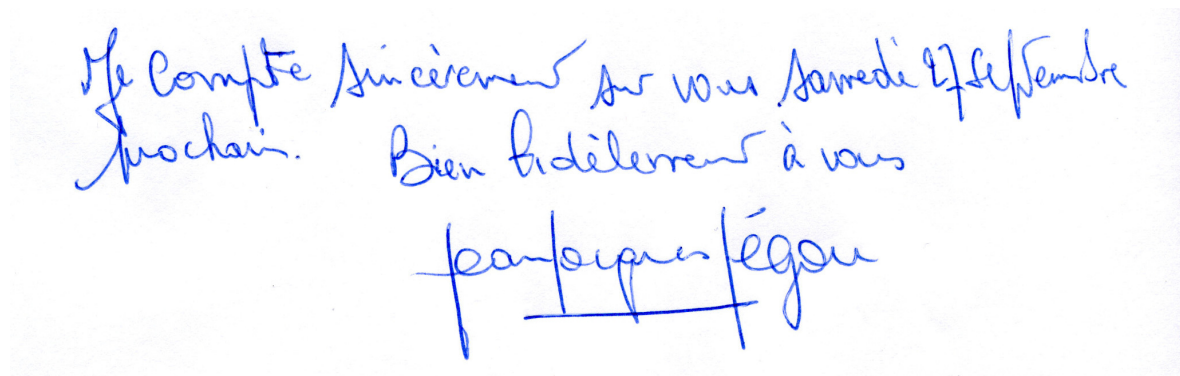 Je Compte sincèrement sur vous samedi 27 septembre
prochain. Bien fidèlement à vous
Jean Jacques Jégou